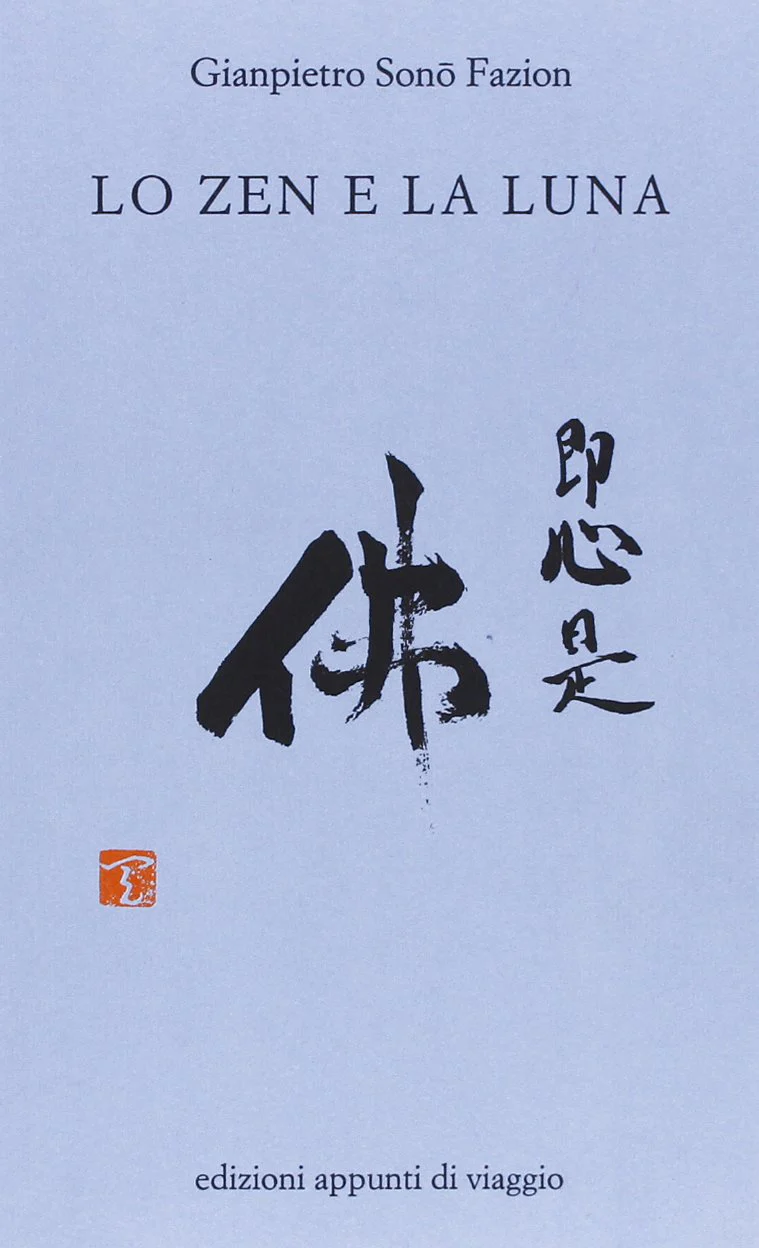 Gianpietro Sonō Fazion
LO ZEN E LA LUNA
即心是
佛
edizioni appunti di viaggio